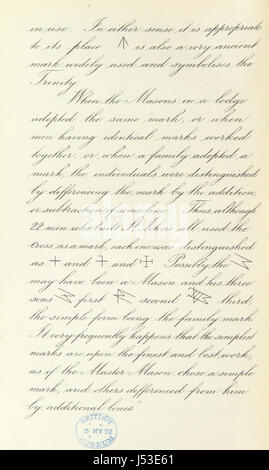 in use. In either sense it is appropriate
to its place. ↑ is also a very ancient
mark widely used and symbolises the
Trinity.
When the Masons in a lodge
adopted the same mark, or when
men having identical marks worked
together, or when a family adopted a
mark, the individuals were distinguished
by differencing the mark by the addition,
or subtraction of some lines. Thus although
22 men who built St. all used the
Cross, as a mark, each one was distinguished
as + and + and ✠ Possibly the
may have been a Mason and his three
sons first second third,
the simple form being the family mark.
It very frequently happens that the simplest
marks are upon the finest and best work,
as if the Master Mason chose a simple
mark, and others differenced from him
by additional lines."
BRITISH
5 MY 92
MUSEUM
alamy
alamy stock photo
www.alamy.com - J53E61